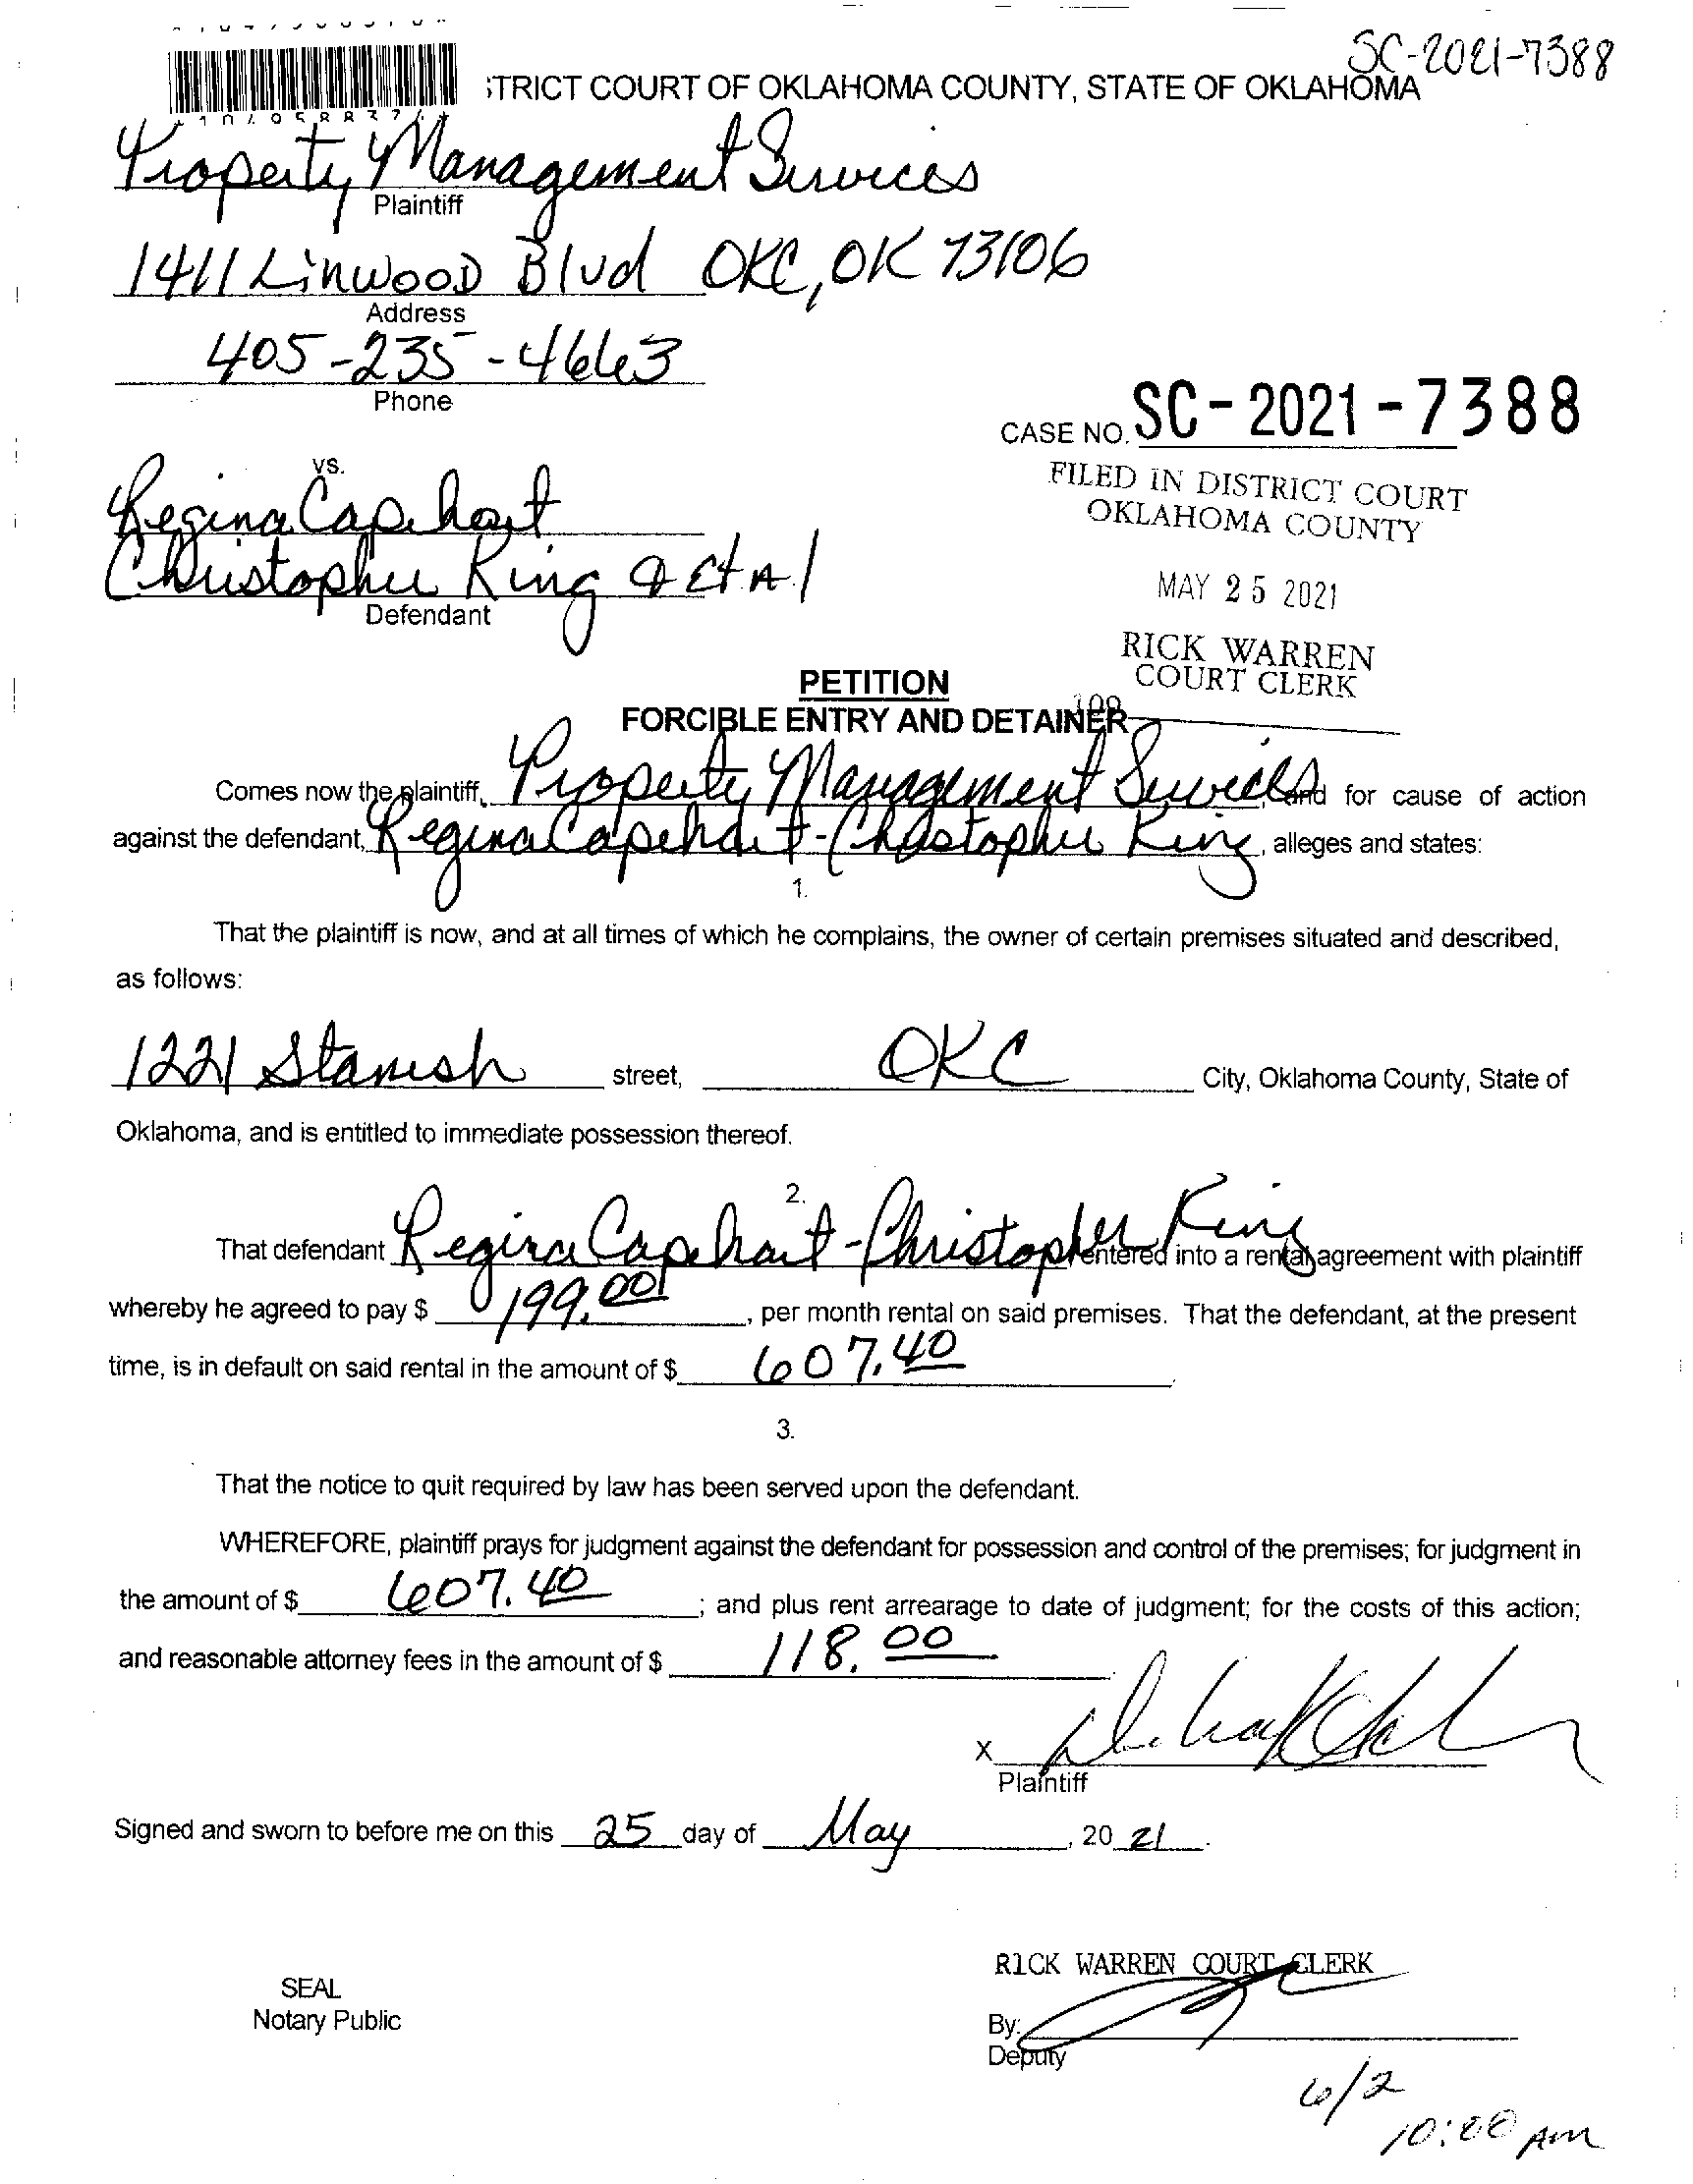 SC-2021-7388
STRICT COURT OF OKLAHOMA COUNTY, STATE OF OKLAHOMA
Property Management Services
Plaintiff
1411 Linwood Blvd OKC, OK 73106
Address
405-235-4663
Phone
CASE NO. SC-2021-7388
vs.
FILED IN DISTRICT COURT
OKLAHOMA COUNTY
Regina Capehart
Christopher King & Et Al
Defendant
MAY 25 2021
RICK WARREN
COURT CLERK
PETITION
FORCIBLE ENTRY AND DETAINER
Comes now the plaintiff, Property Management Services, and for cause of action
against the defendant, Regina Capehart-Christopher King, alleges and states:
1.
That the plaintiff is now, and at all times of which he complains, the owner of certain premises situated and described,
as follows:
1221 Stanish street, OKC City, Oklahoma County, State of
Oklahoma, and is entitled to immediate possession thereof.
2.
That defendant Regina Capehart-Christopher King entered into a rental agreement with plaintiff
whereby he agreed to pay $ 199.00, per month rental on said premises. That the defendant, at the present
time, is in default on said rental in the amount of $ 607.40
3.
That the notice to quit required by law has been served upon the defendant.
WHEREFORE, plaintiff prays for judgment against the defendant for possession and control of the premises; for judgment in
the amount of $ 607.40; and plus rent arrearage to date of judgment; for the costs of this action;
and reasonable attorney fees in the amount of $ 118.00
X
Plaintiff
Signed and sworn to before me on this 25 day of May, 20 21.
RICK WARREN COURT CLERK
SEAL
Notary Public
By:
Deputy
6/2
10:00 Am